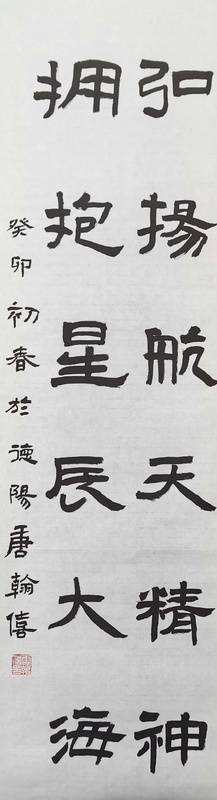 弘揚航天精神
拥抱星辰大海
癸卯初春於德陽唐翰僖